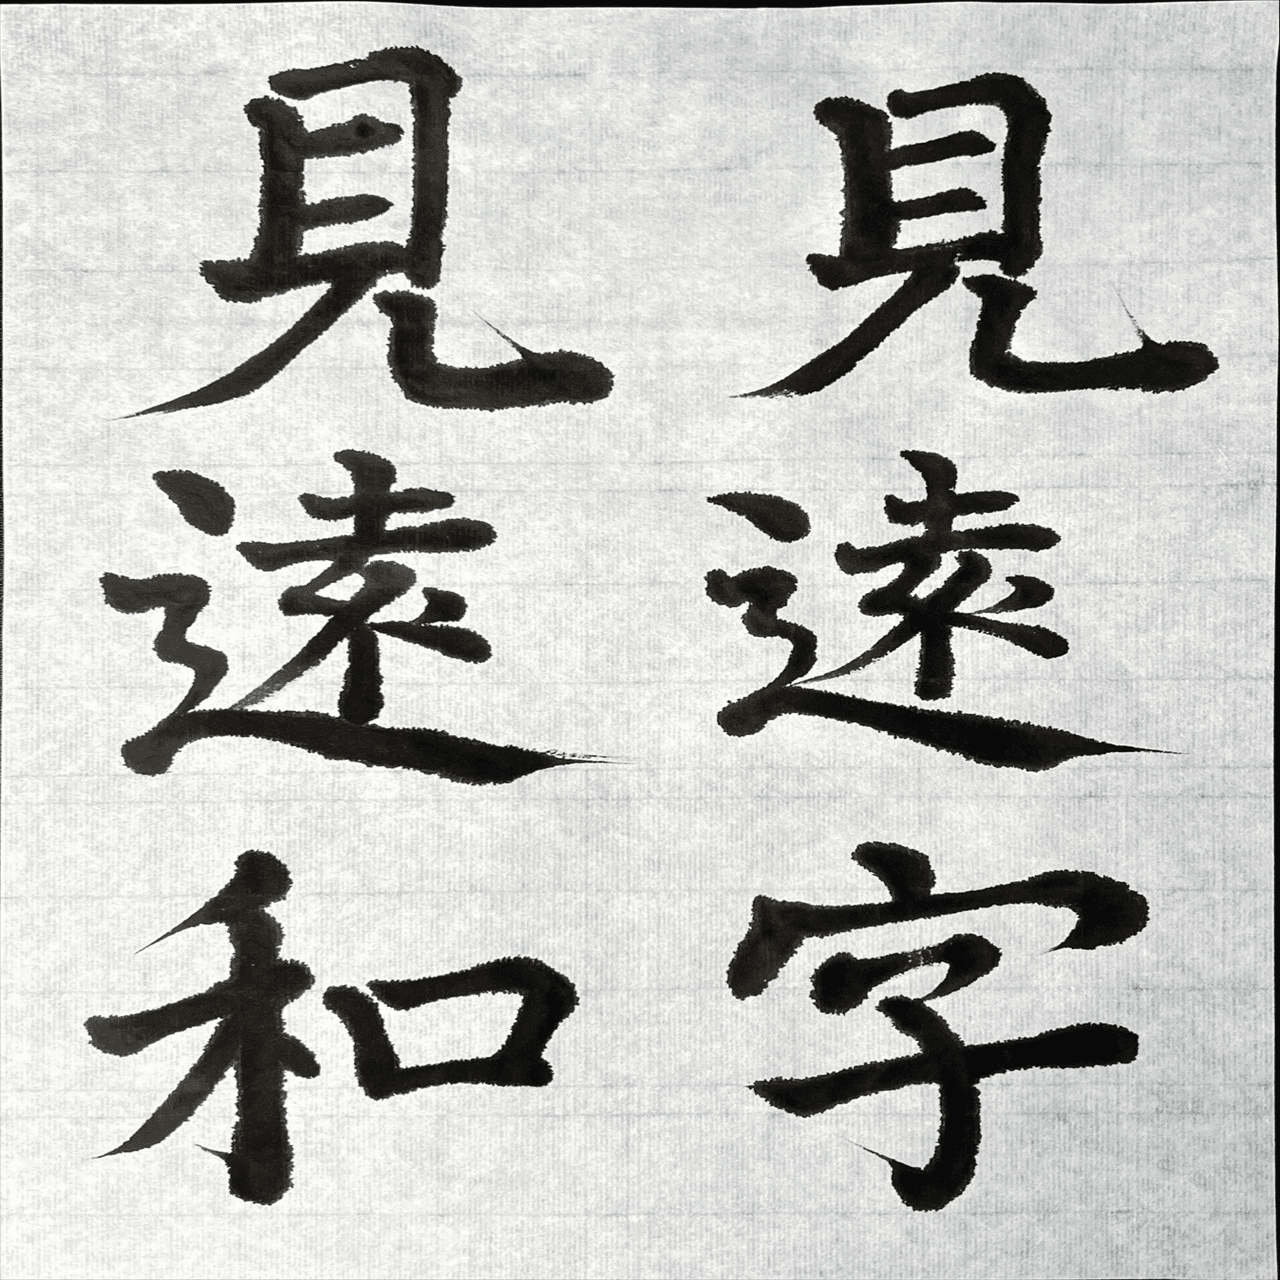 見遠字
見遠和